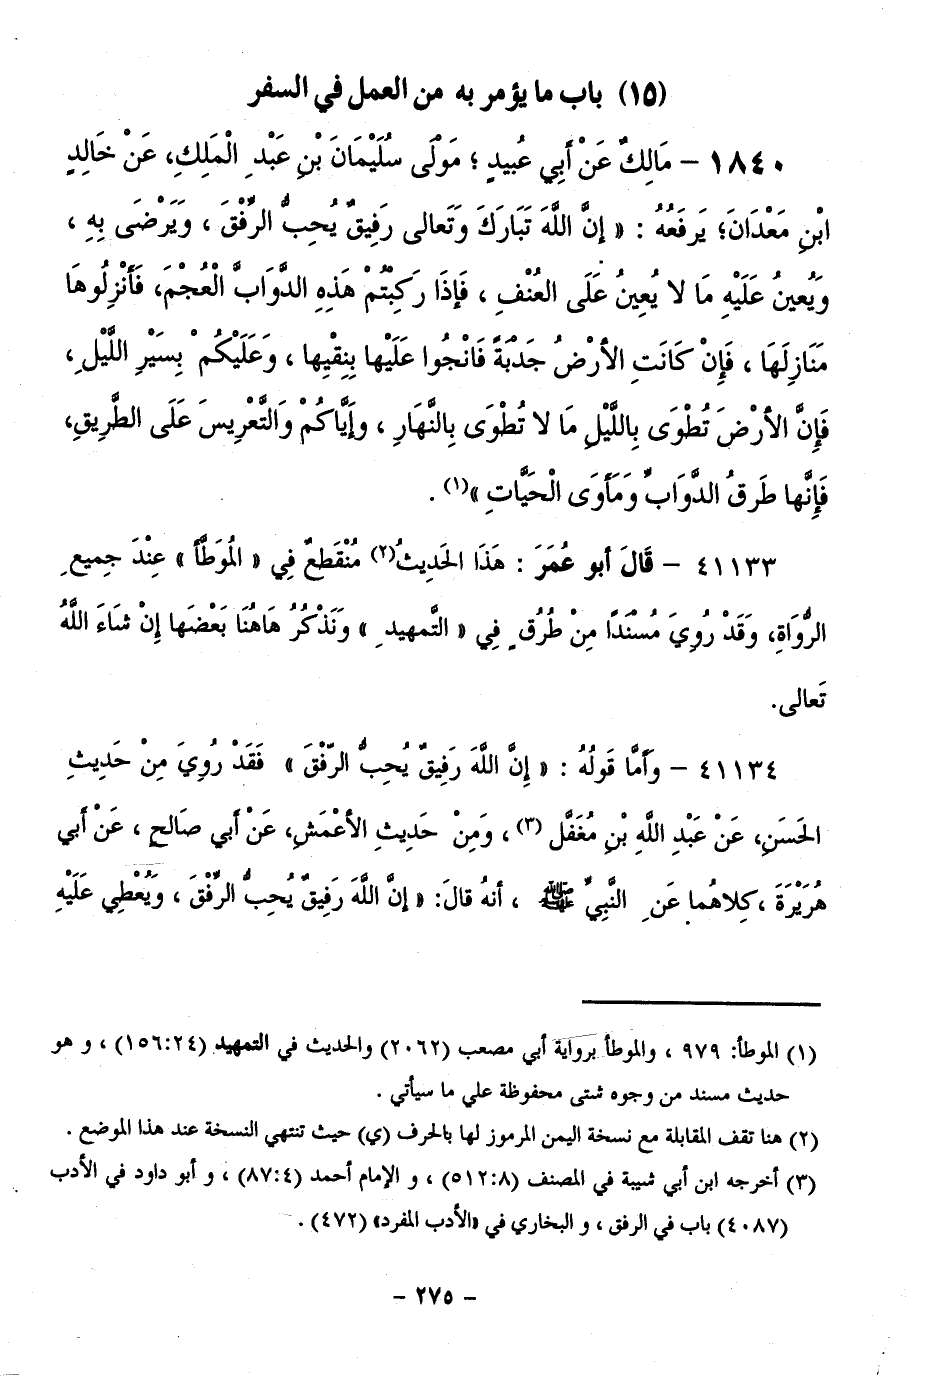 (١٥) باب ما يؤمر به من العمل في السفر
١٨٤٠ – مَالِكٌ عَنْ أَبِي عُبيدٍ ؛ مَوْلَى سُلَيْمَانَ بْنِ عَبْدِ الْمَلِكِ، عَنْ خَالِدِ
ابْنِ مَعْدَانَ؛ يَرفَعُهُ : « إنَّ اللَّهَ تَبَارَكَ وَتَعالى رَفِيقٌ يُحِبُّ الرِّفْقَ ، وَيَرْضَى بِهِ ،
وَيُعينُ عَلَيْهِ مَا لا يُعِينُ عَلَى العُنْفِ ، فَإذَا رَكِبْتُمْ هَذِهِ الدَّوَابَّ الْعُجْمَ، فَأَنْزِلُوهَا
مَنَازِلَهَا ، فَإِنْ كَانَتِ الأرْضُ جَدْبَةً فَانْجُوا عَلَيْها بِنِقْيِها ، وَعَلَيْكُمْ بِسَيْرِ اللَّيْلِ،
فَإنَّ الأرْضَ تُطْوَى بِاللَّيْلِ مَا لا تُطْوَى بِالنَّهَارِ ، وَإِيَّاكُمْ وَالتَّعْرِيسَ عَلَى الطَّرِيقِ،
فَإِنَّها طَرقُ الدَّوَابِّ وَمَأوَى الْحَيَّاتِ »(١) .
٤١١٣٣ – قَالَ أبو عُمَرَ : هَذَا الحَدِيثُ(٢) مُنْقَطِعٌ فِي « الْمُوَطَّأ » عِنْدَ جَمِيعِ
الرُّوَاةِ، وَقَدْ رُوِيَ مُسْنَدًا مِنْ طُرُقٍ فِي « التَّمهِيدِ » وَنَذْكُرُ هَاهُنَا بَعْضَها إنْ شَاءَ اللَّهُ
تَعالى.
٤١١٣٤ – وَأَمَّا قَولُهُ : « إِنَّ اللَّهَ رَفِيقٌ يُحِبُّ الرِّفْقَ » فَقَدْ رُوِيَ مِنْ حَدِيثِ
الحَسَنِ، عَنْ عَبْدِ اللَّهِ بْنِ مُغَفَّل (٣) ، وَمِنْ حَدِيثِ الأعْمَشِ، عَنْ أَبي صَالحٍ ، عَنْ أَبي
هُرَيْرَةَ ، كِلاهُما عَنِ النَّبِيِّ ﷺ ، أنهُ قالَ: « إنَّ اللَّهَ رَفِيقٌ يُحِبُّ الرِّفْقَ ، وَيُعْطِي عَلَيْهِ
(١) الموطأ: ٩٧٩ ، والموطأ برواية أبي مصعب (٢٠٦٢) والحديث في التمهيد (١٥٦:٢٤) ، و هو
حديث مسند من وجوه شتى محفوظة علي ما سيأتي .
(٢) هنا تقف المقابلة مع نسخة اليمن المرموز لها بالحرف (ي) حيث تنتهي النسخة عند هذا الموضع .
(٣) أخرجه ابن أبي شيبة في المصنف (٥١٢:٨) ، و الإمام أحمد (٨٧:٤) ، و أبو داود في الأدب
(٤٠٨٧) باب في الرفق ، و البخاري في «الأدب المفرد» (٤٧٢) .
– ٢٧٥ –